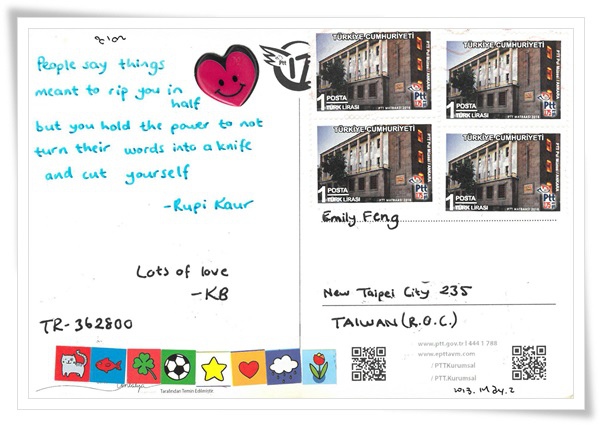 People say things
meant to rip you in
half
but you hold the power to not
turn their words into a knife
and cut yourself
-Rupi Kaur
Lots of love
-KB
TR-362800
Tarafından Temin Edilmiştir.
Ptt
17
TÜRKİYE CUMHURİYETİ
PTT Pul Müzesi / ANKARA
Ptt
1 POSTA
TÜRK LİRASI
TÜRKİYE CUMHURİYETİ
PTT Pul Müzesi / ANKARA
Ptt
1 POSTA
TÜRK LİRASI
TÜRKİYE CUMHURİYETİ
PTT Pul Müzesi / ANKARA
Ptt
1 POSTA
TÜRK LİRASI
TÜRKİYE CUMHURİYETİ
PTT Pul Müzesi / ANKARA
Ptt
1 POSTA
TÜRK LİRASI
Emily Feng
New Taipei City 235
TAIWAN (R.O.C.)
www.ptt.gov.tr | 444 1 788
www.epttavm.com
/ PTTKurumsal
/ PTT.Kurumsal